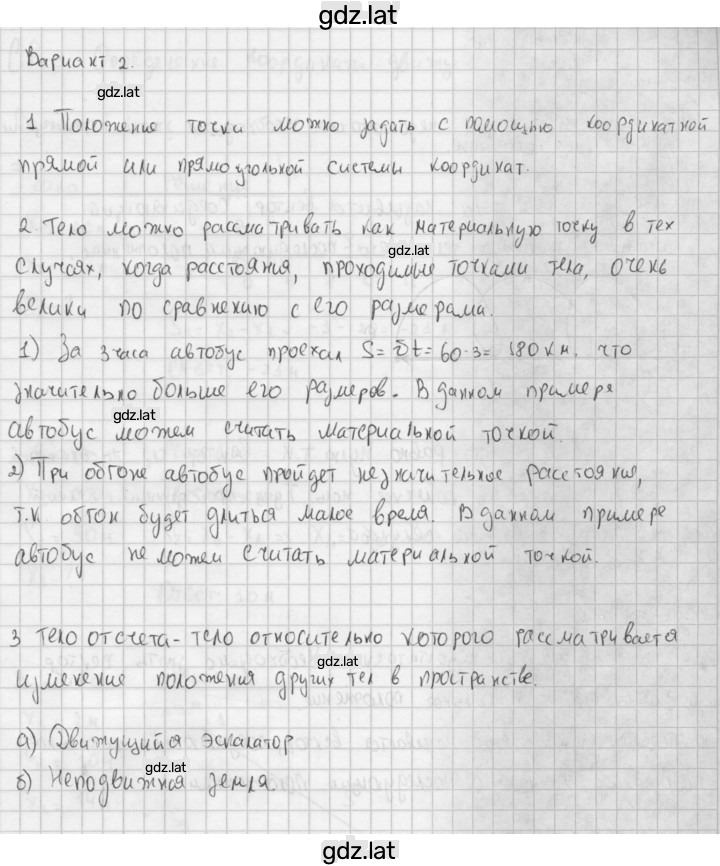 gdz.lat
Вариант 2.
gdz.lat
1 Положение точки можно задать с помощью координатной
прямой или прямоугольной системы координат.
2. Тело можно рассматривать как материальную точку в тех
gdz.lat
случаях, когда расстояния, проходимые точками тела, очень
велики по сравнению с его размерами.
1) За 3 часа автобус проехал S = υt = 60·3 = 180 км, что
значительно больше его размеров. В данном примере
gdz.lat
автобус можем считать материальной точкой.
2) При обгоне автобус пройдет незначительное расстояния,
т.к обгон будет длиться малое время. В данном примере
gdz.lat
автобус не можем считать материальной точкой.
3 Тело отсчета - тело относительно которого рассматривается
gdz.lat
изменение положения других тел в пространстве.
а) Движущийся эскалатор
gdz.lat
б) Неподвижная земля.
gdz.lat